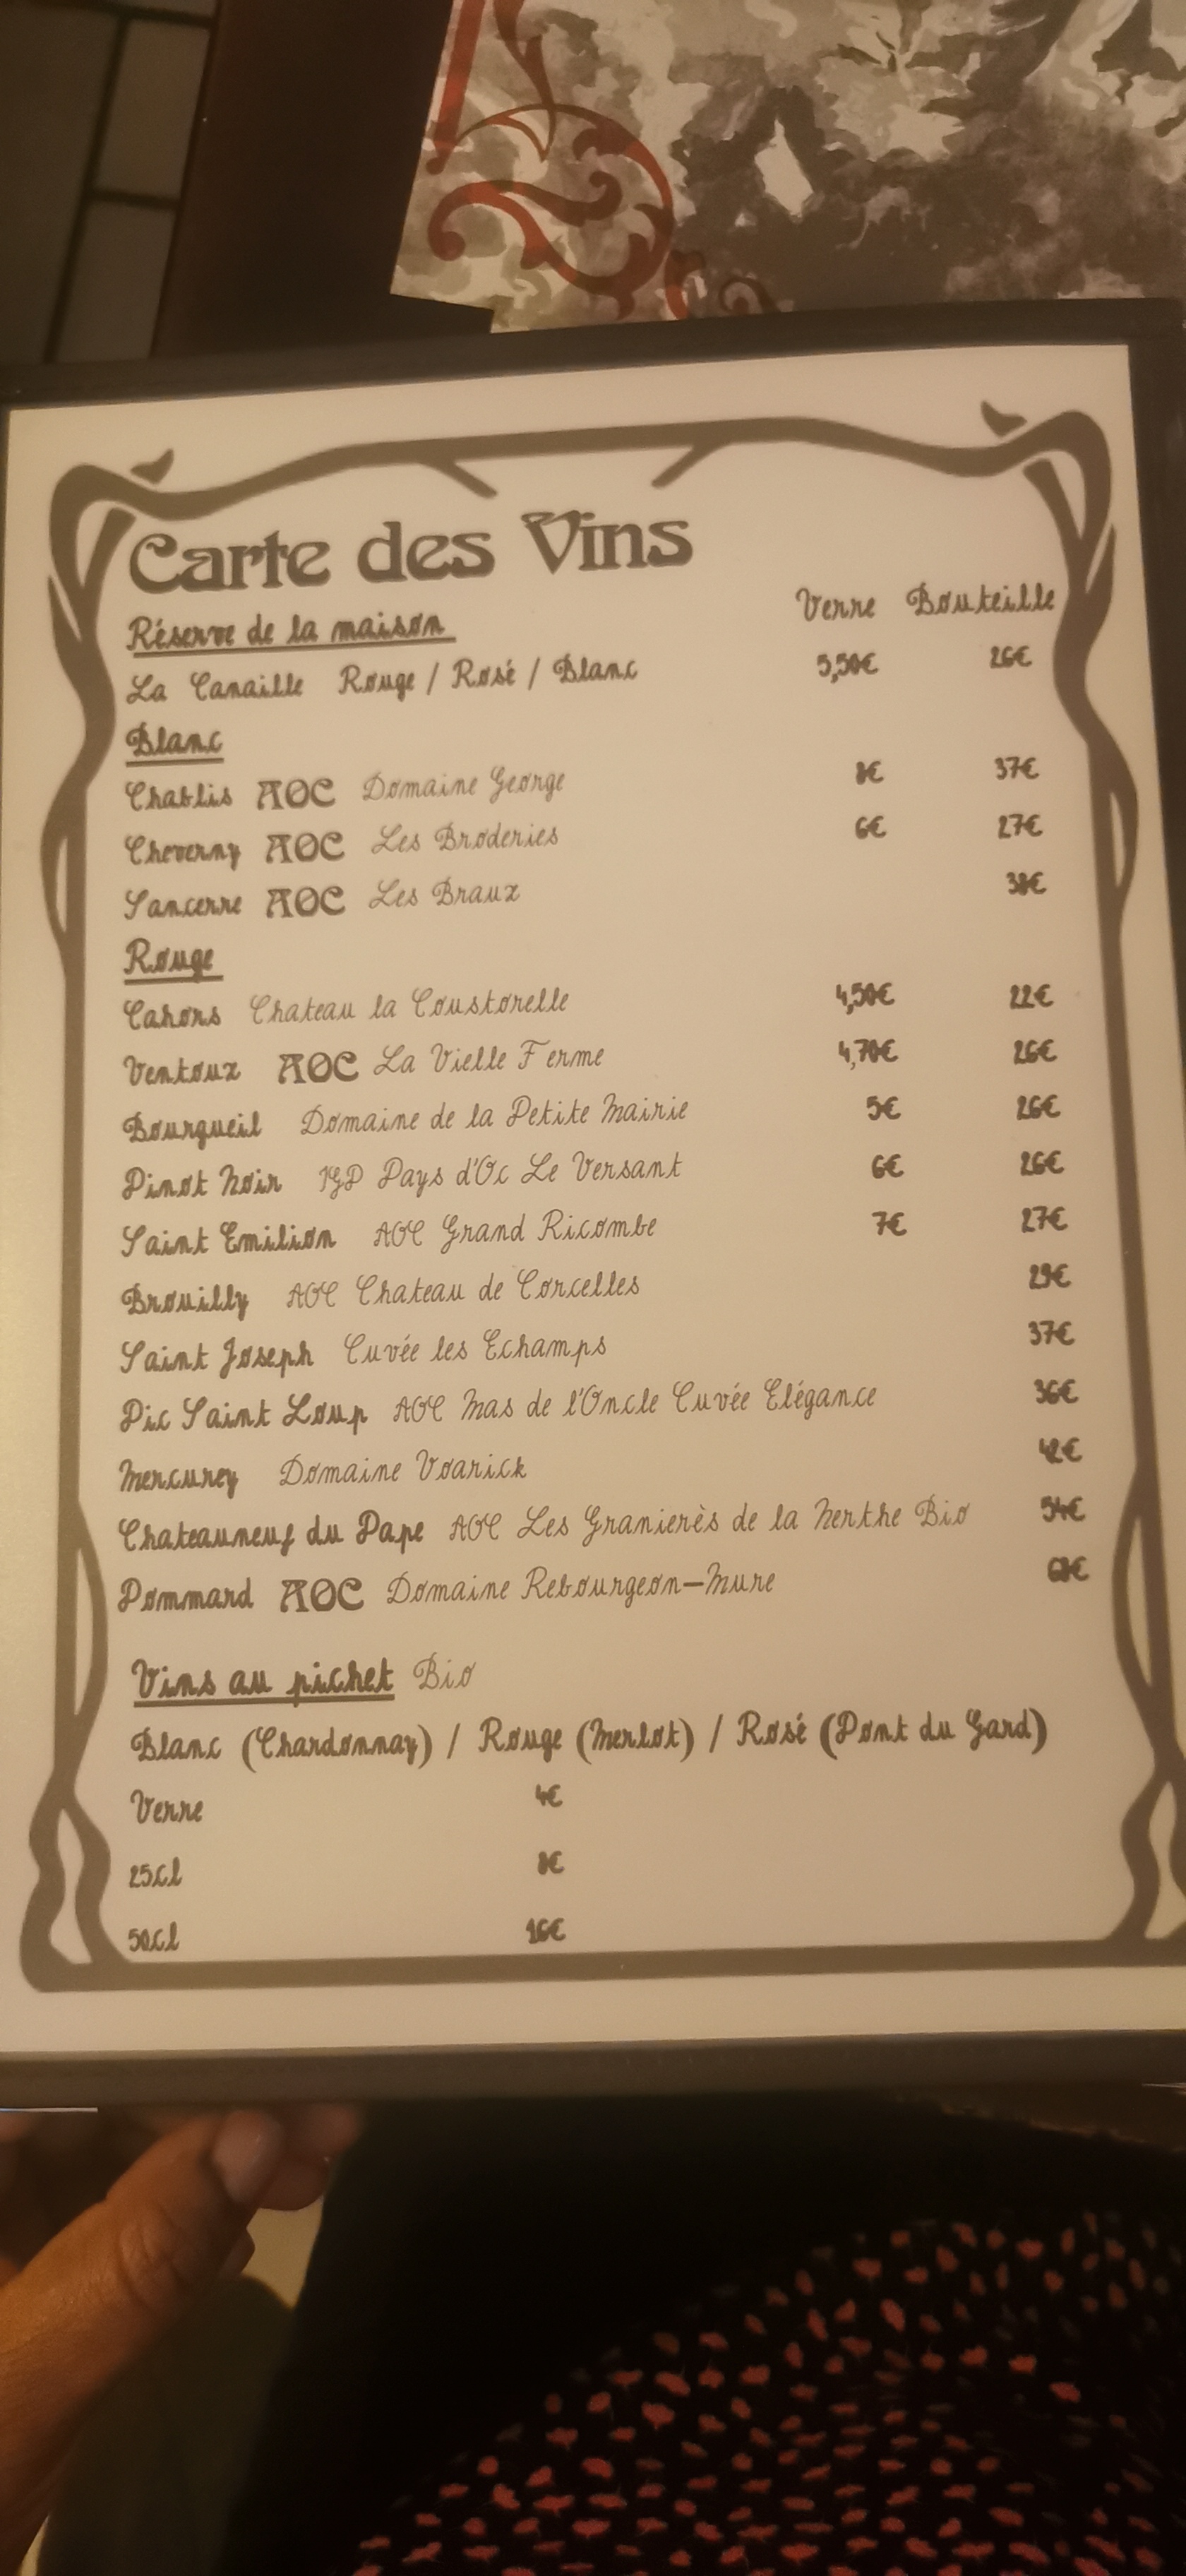 Carte des Vins
Verre Bouteille
Réserve de la maison
La Canaille Rouge / Rosé / Blanc 5,50€ 26€
Blanc
Chablis AOC Domaine George 8€ 37€
Cheverny AOC Les Broderies 6€ 27€
Sancerre AOC Les Braux 38€
Rouge
Cahors Chateau la Coustorelle 4,50€ 22€
Ventoux AOC La Vielle Ferme 4,70€ 26€
Bourgueil Domaine de la Petite Mairie 5€ 26€
Pinot Noir IGP Pays d'Oc Le Versant 6€ 26€
Saint Emilion AOC Grand Ricombe 7€ 27€
Brouilly AOC Chateau de Corcelles 29€
Saint Joseph Cuvée les Echamps 37€
Pic Saint Loup AOC Mas de l'Oncle Cuvée Elégance 36€
Mercurey Domaine Voarick 42€
Chateauneuf du Pape AOC Les Granierès de la Nerthe Bio 54€
Pommard AOC Domaine Rebourgeon-Mure
Vins au pichet Bio
Blanc (Chardonnay) / Rouge (Merlot) / Rosé (Pont du Gard)
Verre 4€
25Cl 8€
50Cl 16€